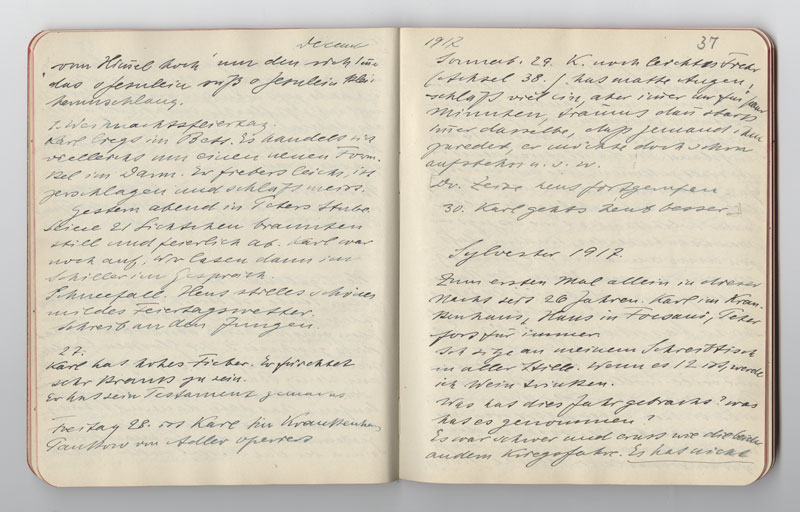 Dezember
"vom Himmel hoch" nur den sich um
das o Jesulein süß o Jesulein klein
herumschlang.
1. Weihnachtsfeiertag.
Karl liegt im Bett. Es handelt sich
vielleicht um einen neuen Form-
im Darm. Er fiebert leicht, ist
zerschlagen und schläft meist.
Gestern abend in Peters Stube.
Seine 21 Lichtchen brannten
still und feierlich ab. Karl war
noch auf. Wir lasen dann im
Schiller im Gespräch.
Schneefall. Heut stilles schönes
mildes Feiertagswetter.
Schreib an den Jungen.
27.
Karl hat hohes Fieber. Er fürchtet
sehr krank zu sein.
Er hat sein Testament gemacht
Freitag 28. ist Karl im Krankenhaus
Pankow von Adler operiert
1917 37
Sonnab. 29. K. noch leichtes Fieber
(Achsel 38.). hat matte Augen,
schläft viel ein, aber immer nur für paar
Minuten, träumt dann stets
immer dasselbe, daß jemand ihm
zuredet, er möchte doch schon
aufstehn u. s. w.
Dr. Zeise heut fortgerufen
30. Karl gehts heut besser.
Sylvester 1917.
Zum ersten Mal allein in dieser
Nacht seit 26 Jahren. Karl im Kran-
kenhaus, Hans in Focsani, Peter
fort für immer.
Ich sitze an meinem Schreibtisch
in aller Stille. Wenn es 12 ist, werde
ich Wein trinken.
Was hat dies Jahr gebracht? was
hat es genommen?
Es war schwer und ernst wie die beiden
andern Kriegsjahre. Es hat nicht